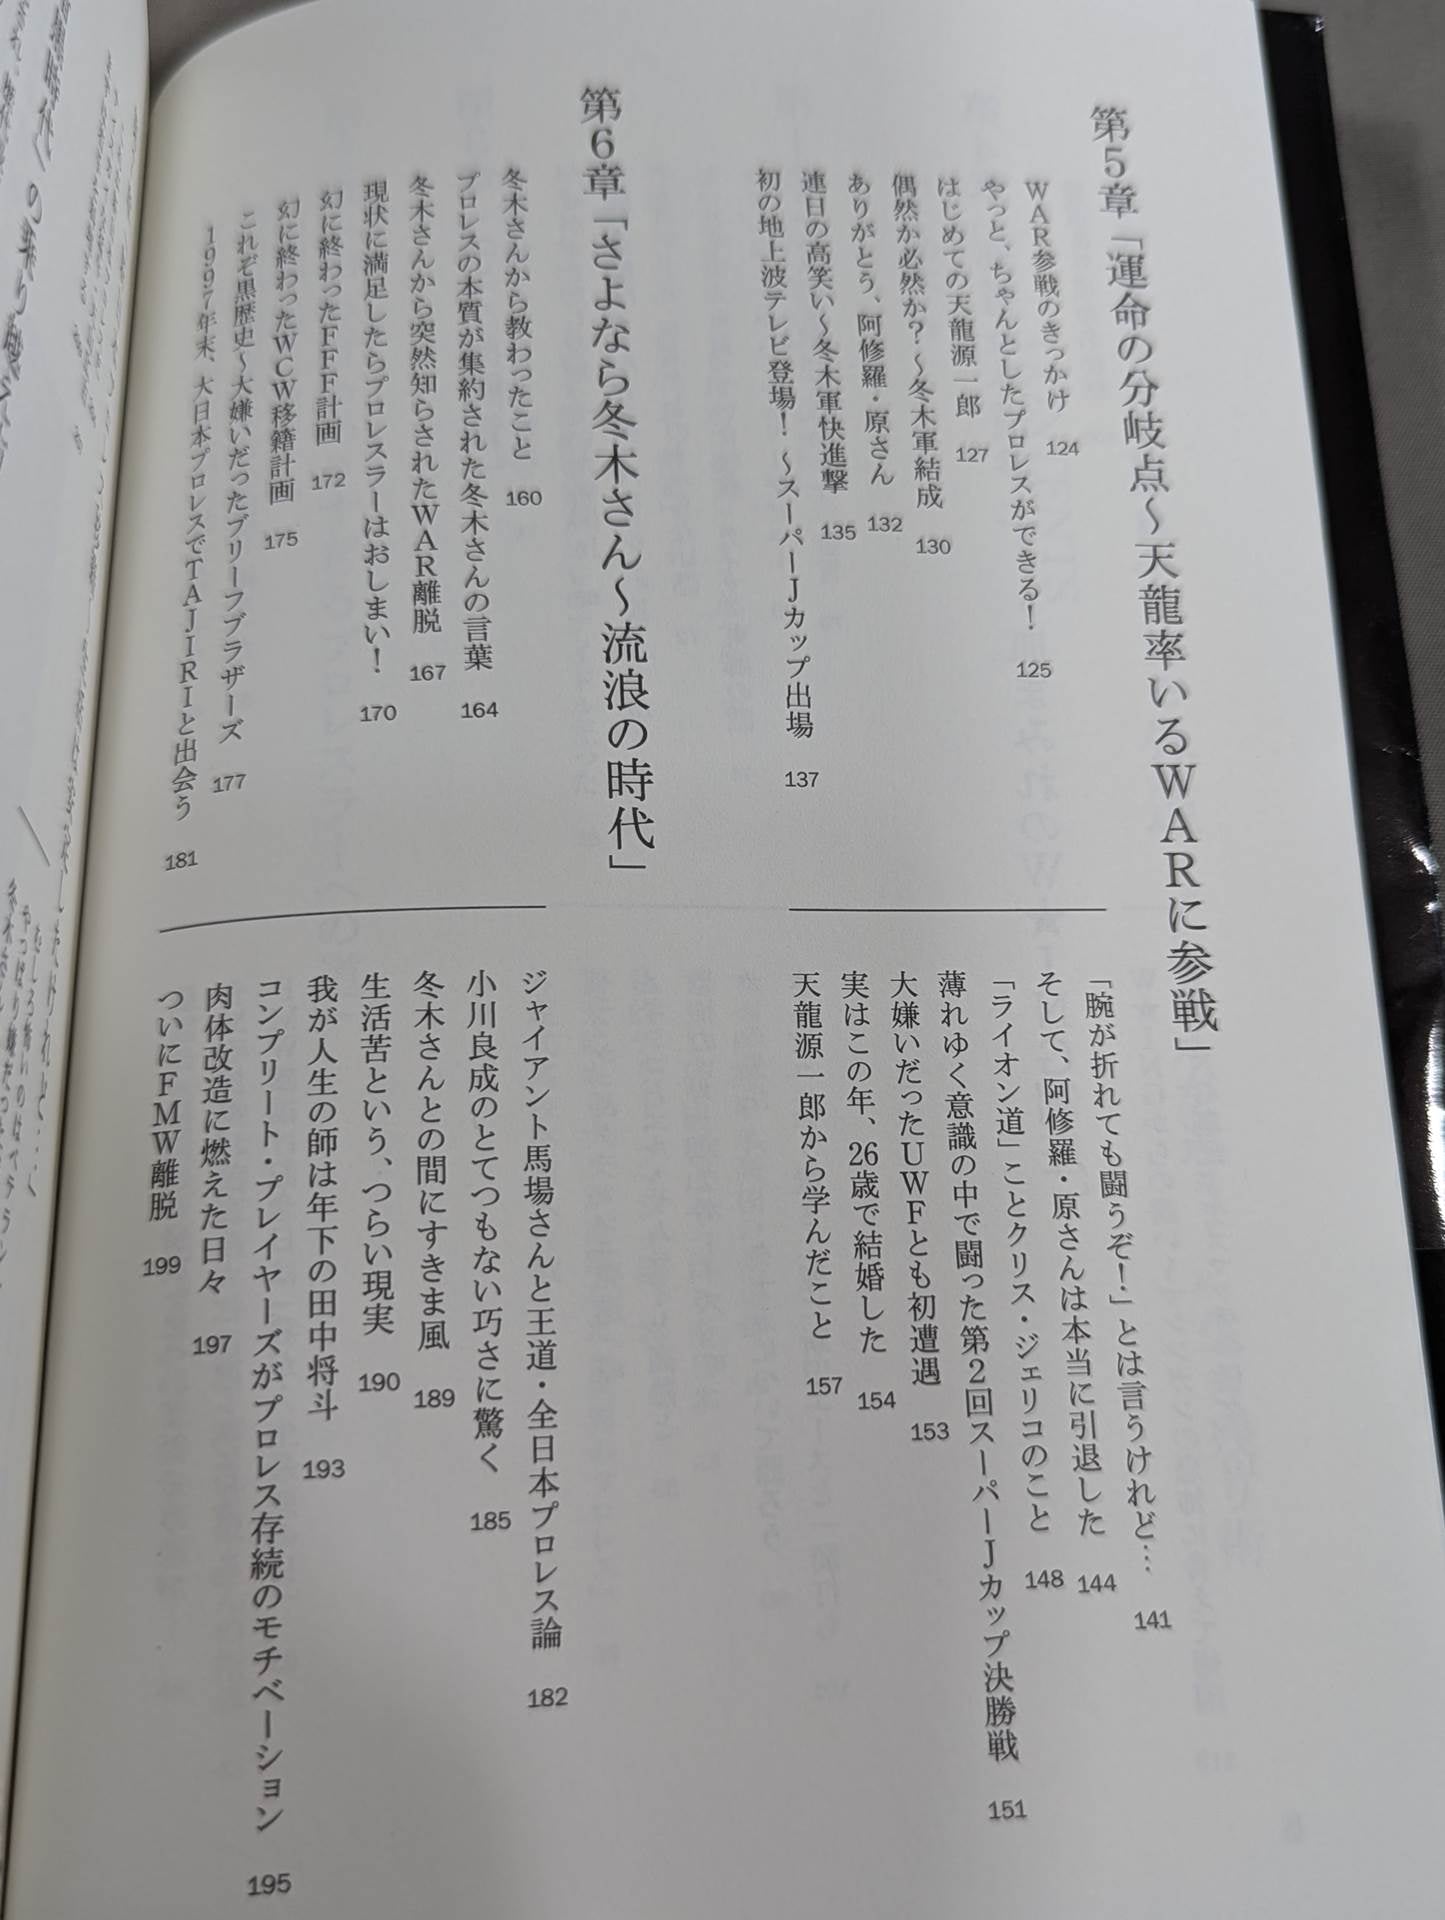 第5章「運命の分岐点〜天龍率いるWARに参戦」
WAR参戦のきっかけ 124
やっと、ちゃんとしたプロレスができる! 125
はじめての天龍源一郎 127
偶然か必然か?〜冬木軍結成 130
ありがとう、阿修羅・原さん 132
連日の高笑い〜冬木軍快進撃 135
初の地上波テレビ登場!〜スーパーJカップ出場 137
「腕が折れても闘うぞ!」とは言うけれど… 141
そして、阿修羅・原さんは本当に引退した 144
「ライオン道」ことクリス・ジェリコのこと 148
薄れゆく意識の中で闘った第2回スーパーJカップ決勝戦 151
大嫌いだったUWFとも初遭遇 153
実はこの年、26歳で結婚した 154
天龍源一郎から学んだこと 157
第6章「さよなら冬木さん〜流浪の時代」
冬木さんから教わったこと 160
プロレスの本質が集約された冬木さんの言葉 164
冬木さんから突然知らされたWAR離脱 167
現状に満足したらプロレスラーはおしまい! 170
幻に終わったFFF計画 172
幻に終わったWCW移籍計画 175
これぞ黒歴史〜大嫌いだったブリーフブラザーズ 177
1997年末、大日本プロレスでTAJIRIと出会う 181
ジャイアント馬場さんと王道・全日本プロレス論 182
小川良成のとてつもない巧さに驚く 185
冬木さんとの間にすきま風 189
生活苦という、つらい現実 190
我が人生の師は年下の田中将斗 193
コンプリート・プレイヤーズがプロレス存続のモチベーション 195
肉体改造に燃えた日々 197
ついにFMW離脱 199